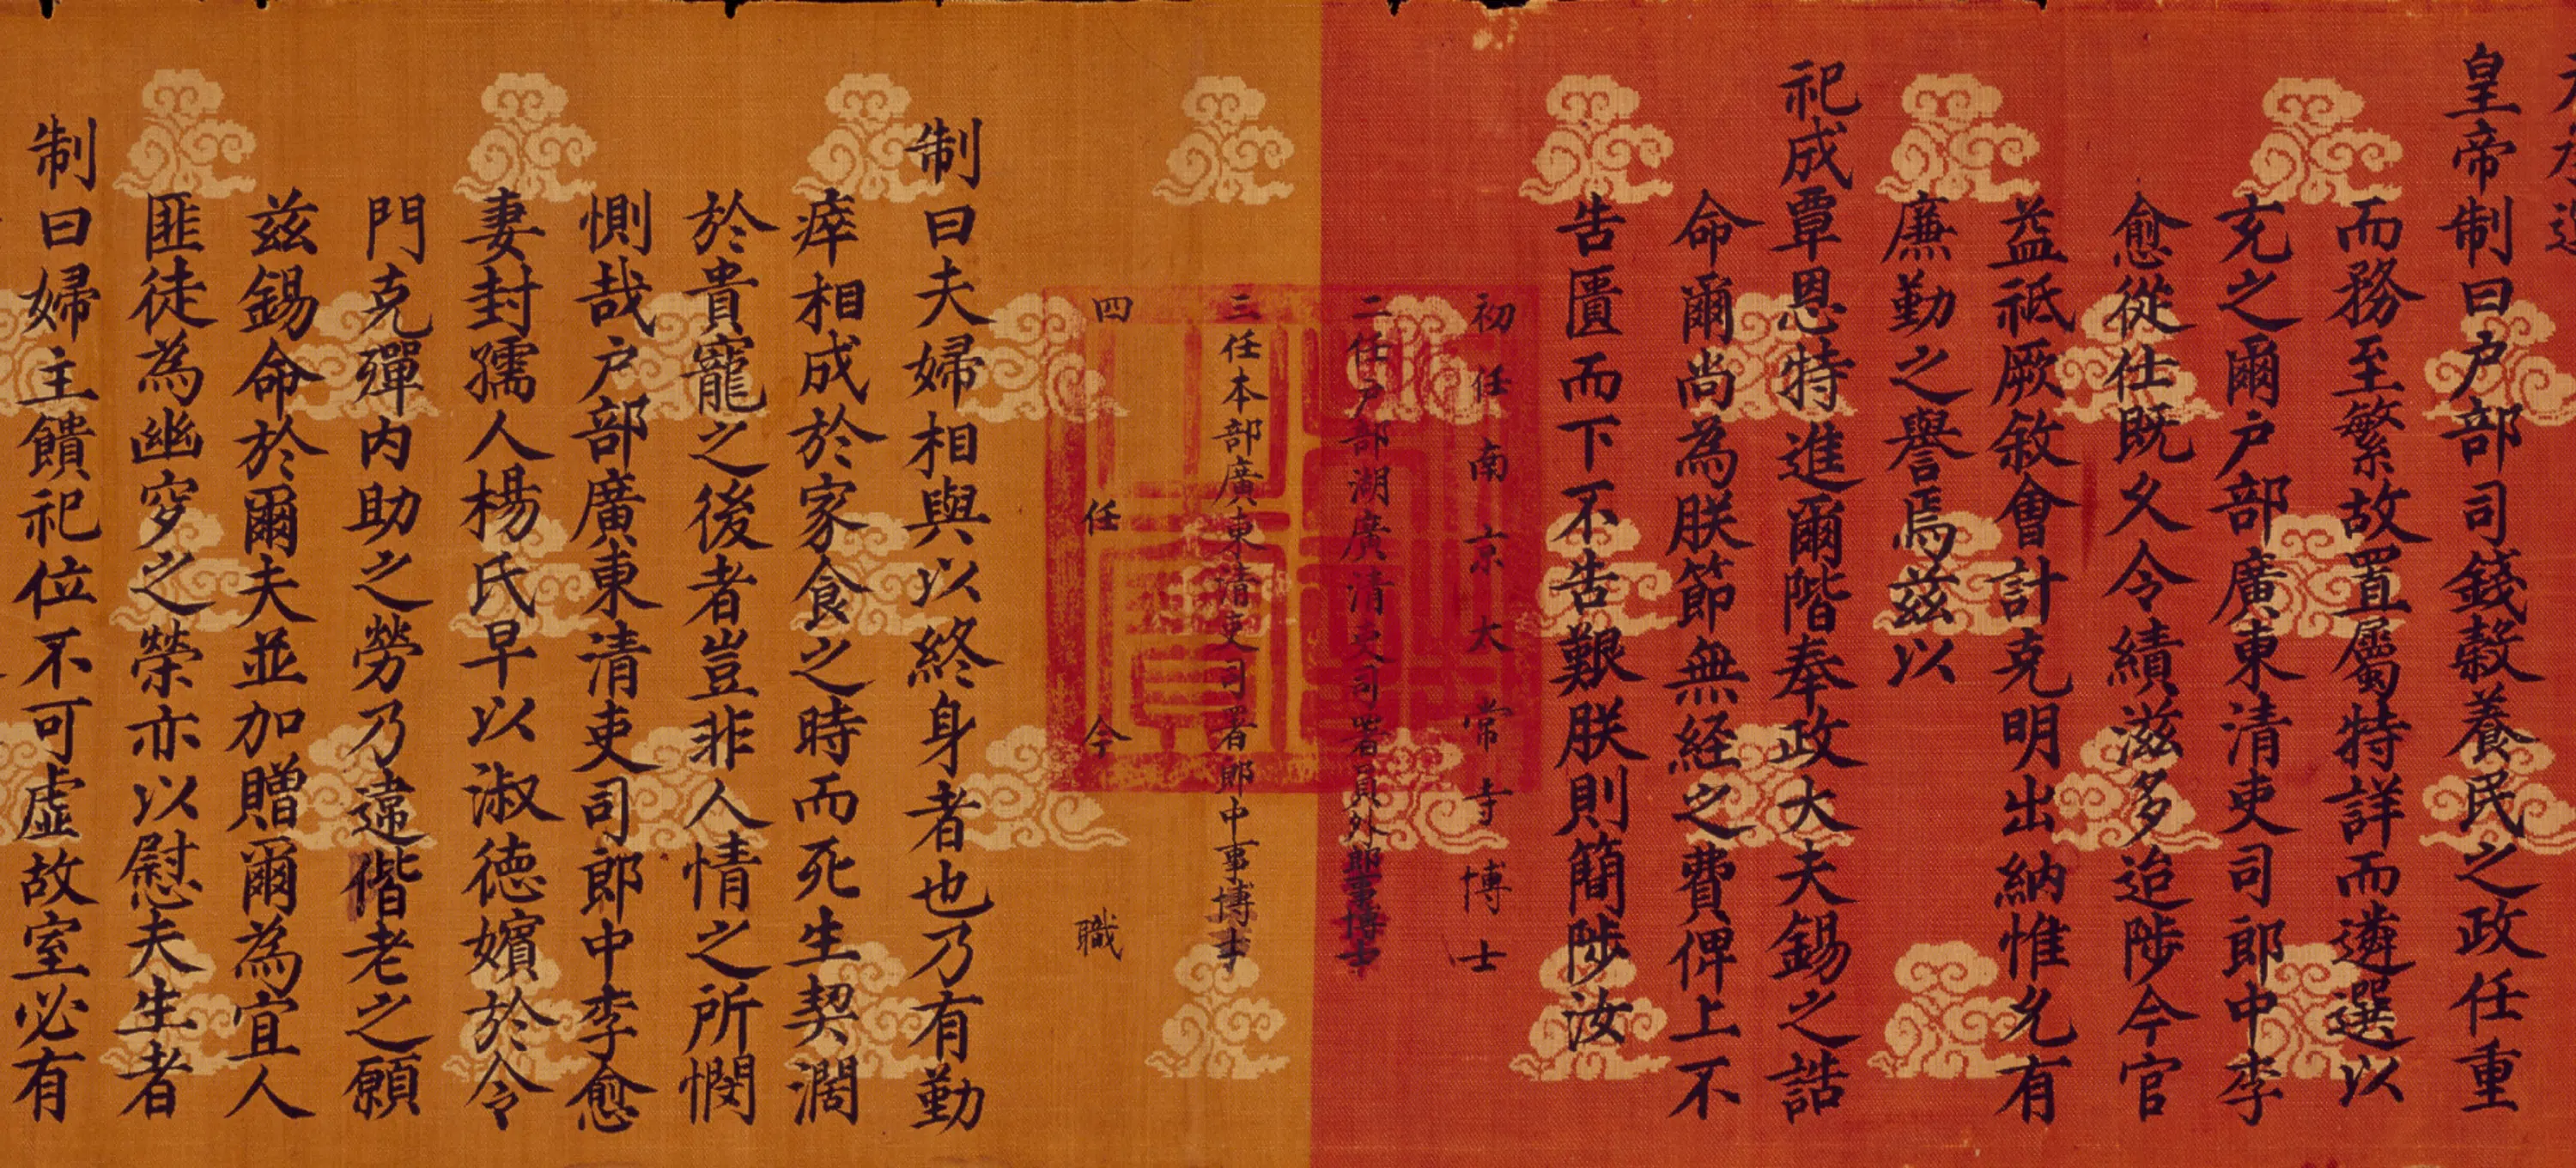 皇帝制曰户部司錢穀養民之政任重
而務至繁故置屬特詳而遴選以
充之爾户部廣東清吏司郎中李
愈從仕既久令績滋多迨陟今官
益祗厥敘會計克明出納惟允有
廉勤之譽焉茲以
祀成覃恩特進爾階奉政大夫錫之誥
命爾尚為朕節無経之費俾上不
告匱而下不告艱朕則簡陟汝
初任南京大常寺博士
二任户部湖廣清吏司署員外郎事博士
三任本部廣東清吏司署郎中事博士
四任今職
制曰夫婦相與以終身者也乃有勤
瘁相成於家食之時而死生契濶
於貴寵之後者豈非人情之所憫
惻哉户部廣東清吏司郎中李愈
妻封孺人楊氏早以淑德嬪於令
門克殫内助之勞乃違偕老之願
茲錫命於爾夫並加贈爾為宜人
匪徒為幽穸之榮亦以慰夫生者
制曰婦主饋祀位不可虛故室必有